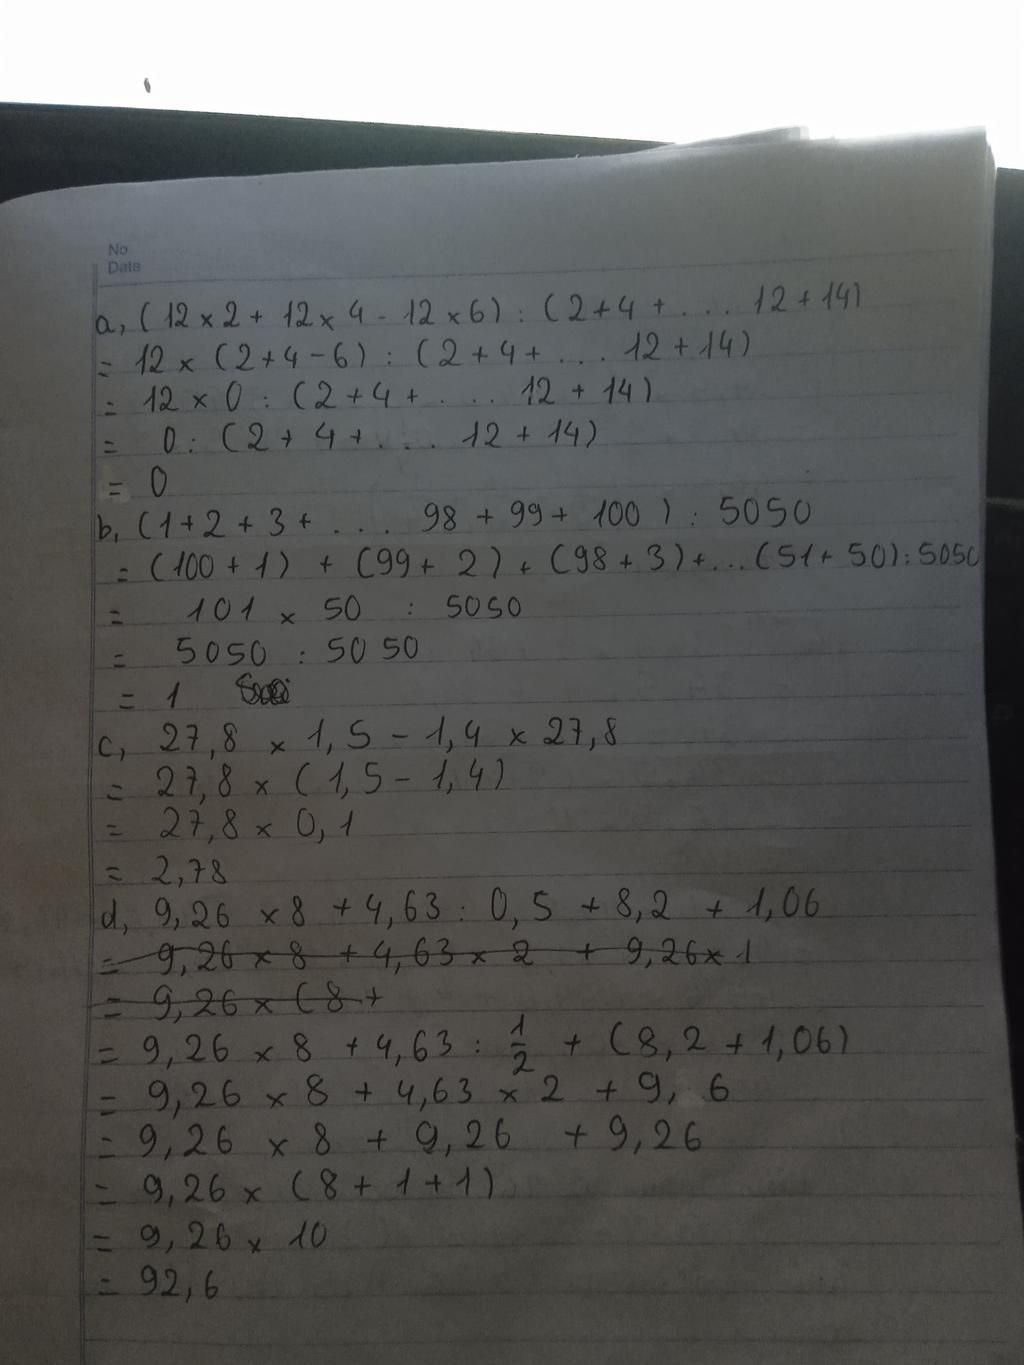 No
Date
a, (12 × 2 + 12 × 4 - 12 × 6) : (2 + 4 + .... 12 + 14)
= 12 × (2 + 4 - 6) : (2 + 4 + ... 12 + 14)
= 12 × 0 : (2 + 4 + .... 12 + 14)
= 0 : (2 + 4 + .... 12 + 14)
= 0
b, (1 + 2 + 3 + .... 98 + 99 + 100) : 5050
= (100 + 1) + (99 + 2) + (98 + 3) + ... (51 + 50) : 5050
= 101 × 50 : 5050
= 5050 : 5050
= 1
c, 27,8 × 1,5 - 1,4 × 27,8
= 27,8 × (1,5 - 1,4)
= 27,8 × 0,1
= 2,78
d, 9,26 × 8 + 4,63 : 0,5 + 8,2 + 1,06
= 9,26 × 8 + 4,63 × 2 + 9,26 × 1
= 9,26 × (8 +
= 9,26 × 8 + 4,63 : 1/2 + (8,2 + 1,06)
= 9,26 × 8 + 4,63 × 2 + 9, 6
= 9,26 × 8 + 9,26 + 9,26
= 9,26 × (8 + 1 + 1)
= 9,26 × 10
= 92,6